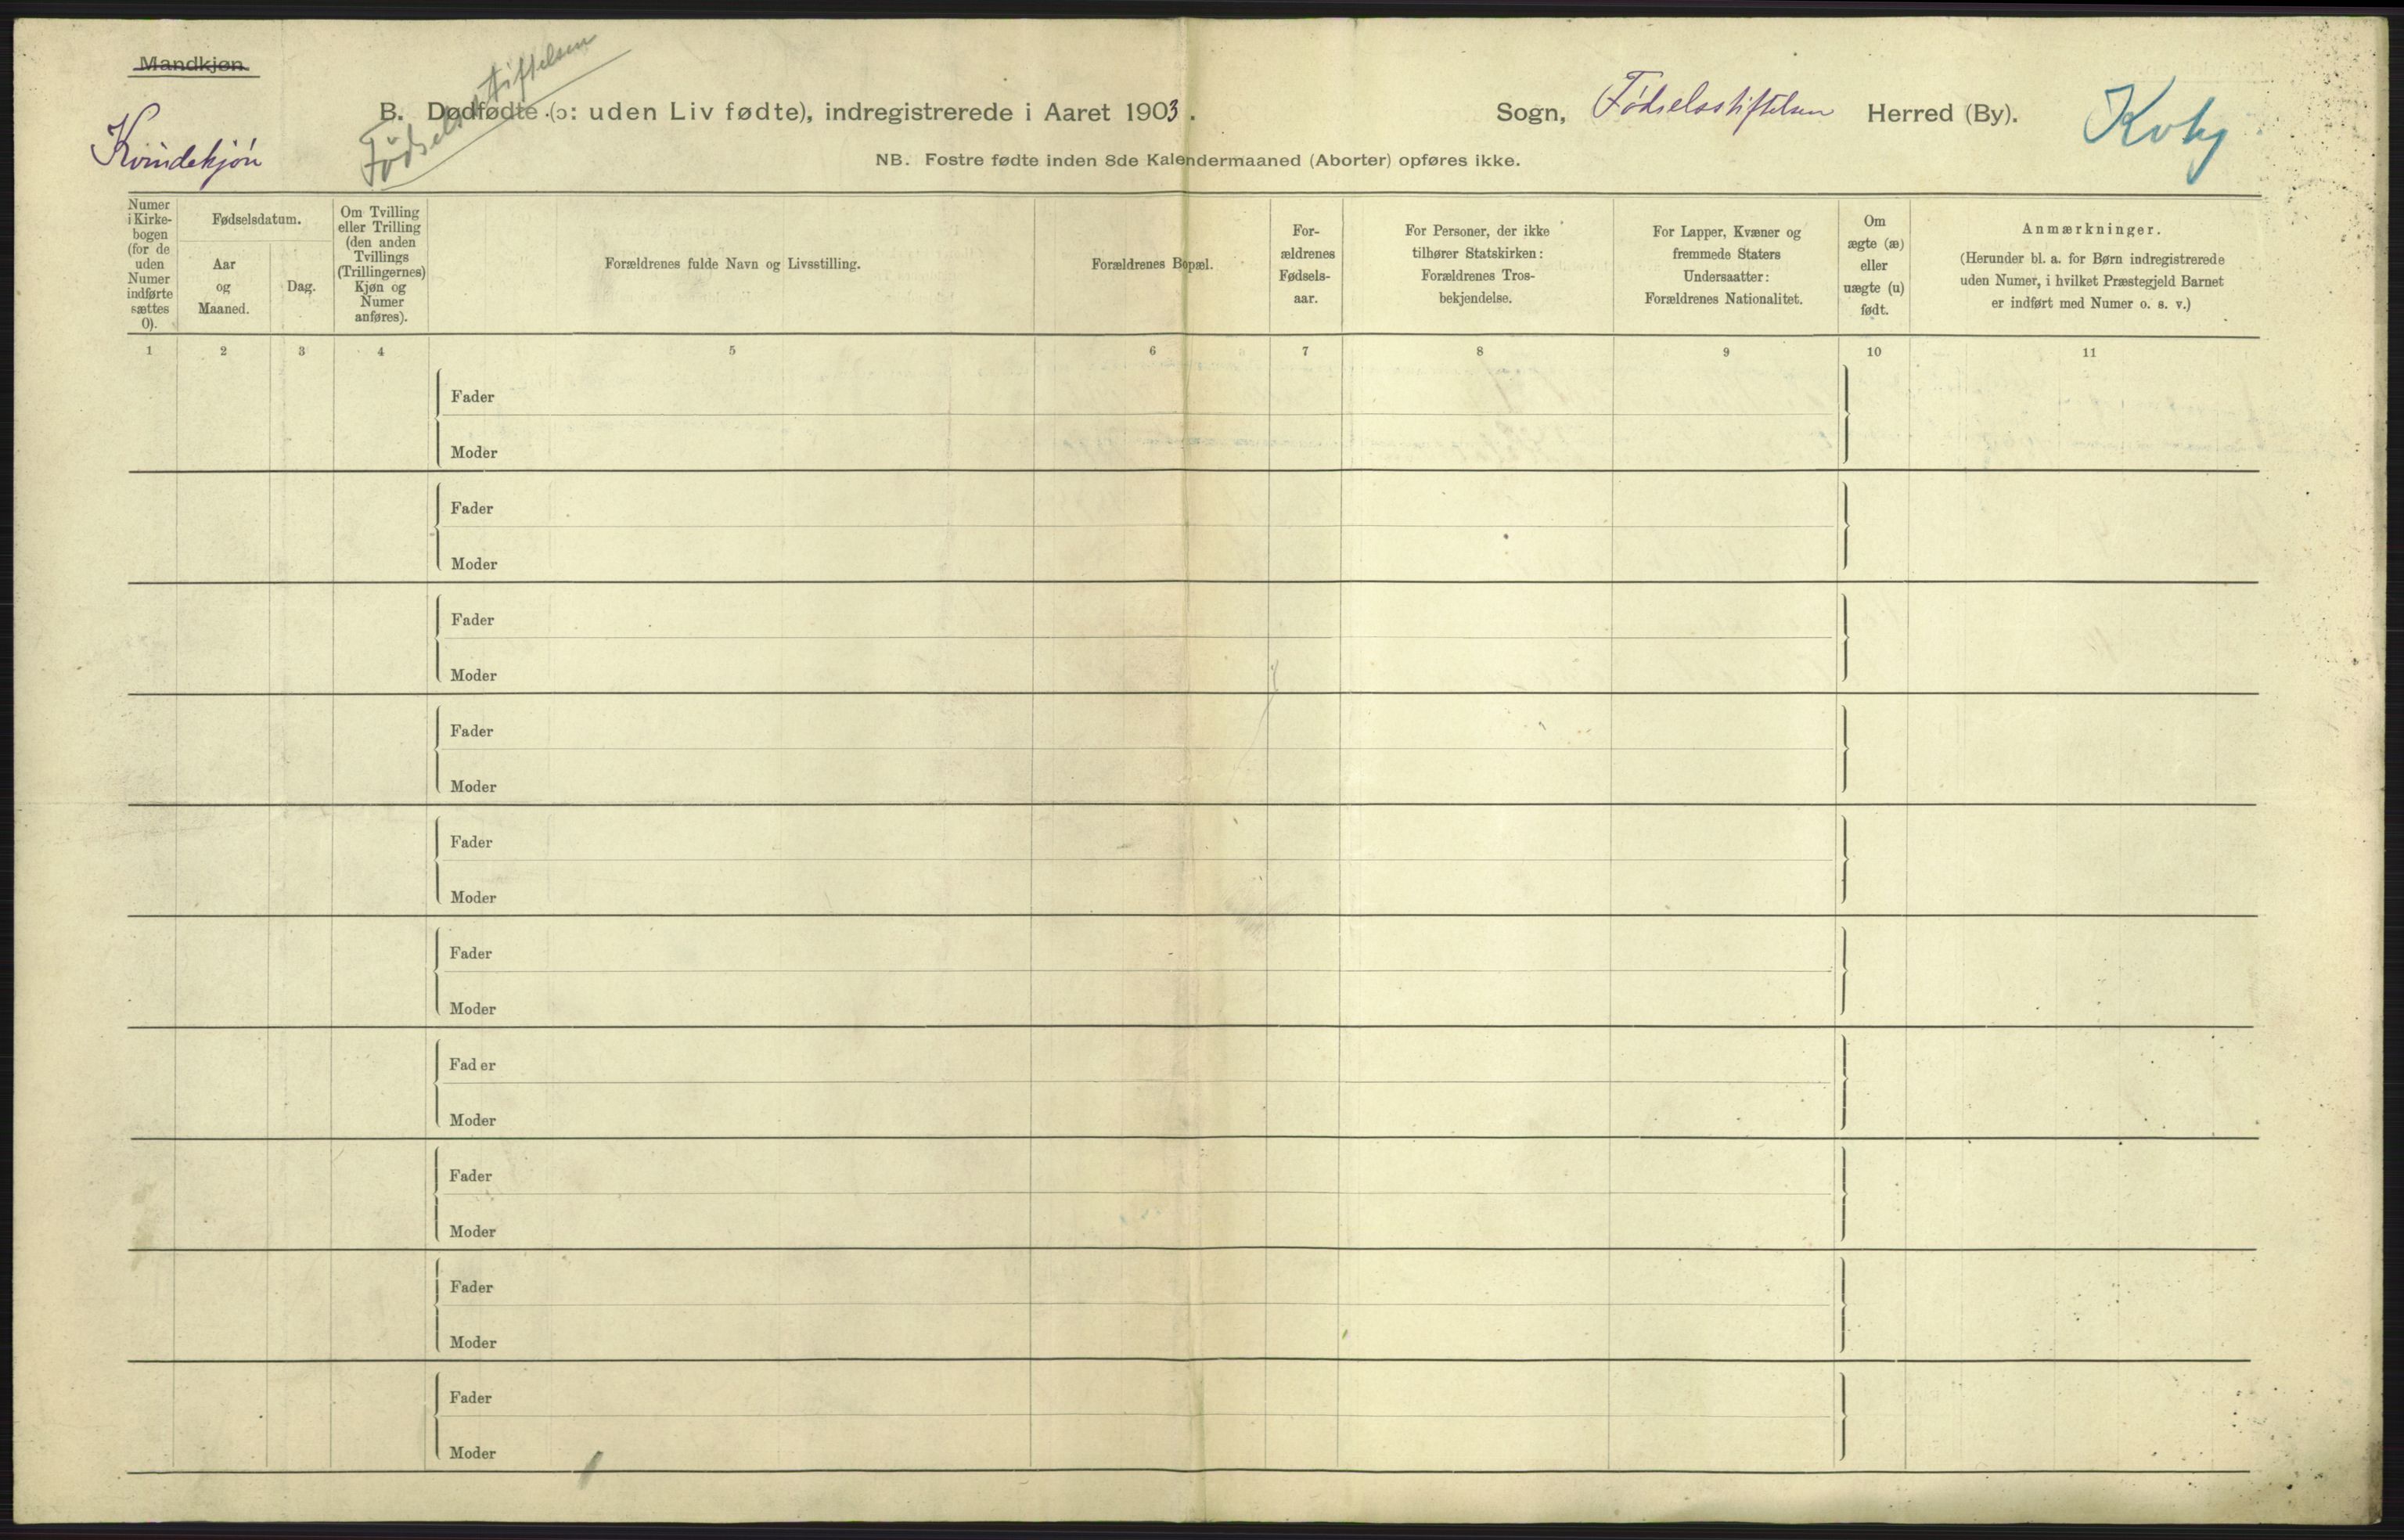 Mandkjøn
Kvindekjøn
Fødselsstiftelsen
B. Dødfødte (ɔ: uden Liv fødte), indregistrerede i Aaret 1903. Sogn, Fødselsstiftelsen Herred (By).
NB. Fostre fødte inden 8de Kalendermaaned (Aborter) opføres ikke.
Numer
i Kirke-
bogen
(for de
uden
Numer
indførte
sættes
0).
Fødselsdatum.
Aar
og
Maaned.
Dag.
Om Tvilling
eller Trilling
(den anden
Tvillings
(Trillingernes)
Kjøn og
Numer
anføres).
Forældrenes fulde Navn og Livsstilling.
Forældrenes Bopæl.
For-
ældrenes
Fødsels-
aar.
For Personer, der ikke
tilhører Statskirken:
Forældrenes Tros-
bekjendelse.
For Lapper, Kvæner og
fremmede Staters
Undersaatter:
Forældrenes Nationalitet.
Om
ægte (æ)
eller
uægte (u)
født.
Anmærkninger.
(Herunder bl. a. for Børn indregistrerede
uden Numer, i hvilket Præstegjeld Barnet
er indført med Numer o. s. v.)
1 2 3 4 5 6 7 8 9 10 11
Fader
Moder
Fader
Moder
Fader
Moder
Fader
Moder
Fader
Moder
Fader
Moder
Fader
Moder
Fader
Moder
Fader
Moder
Fader
Moder